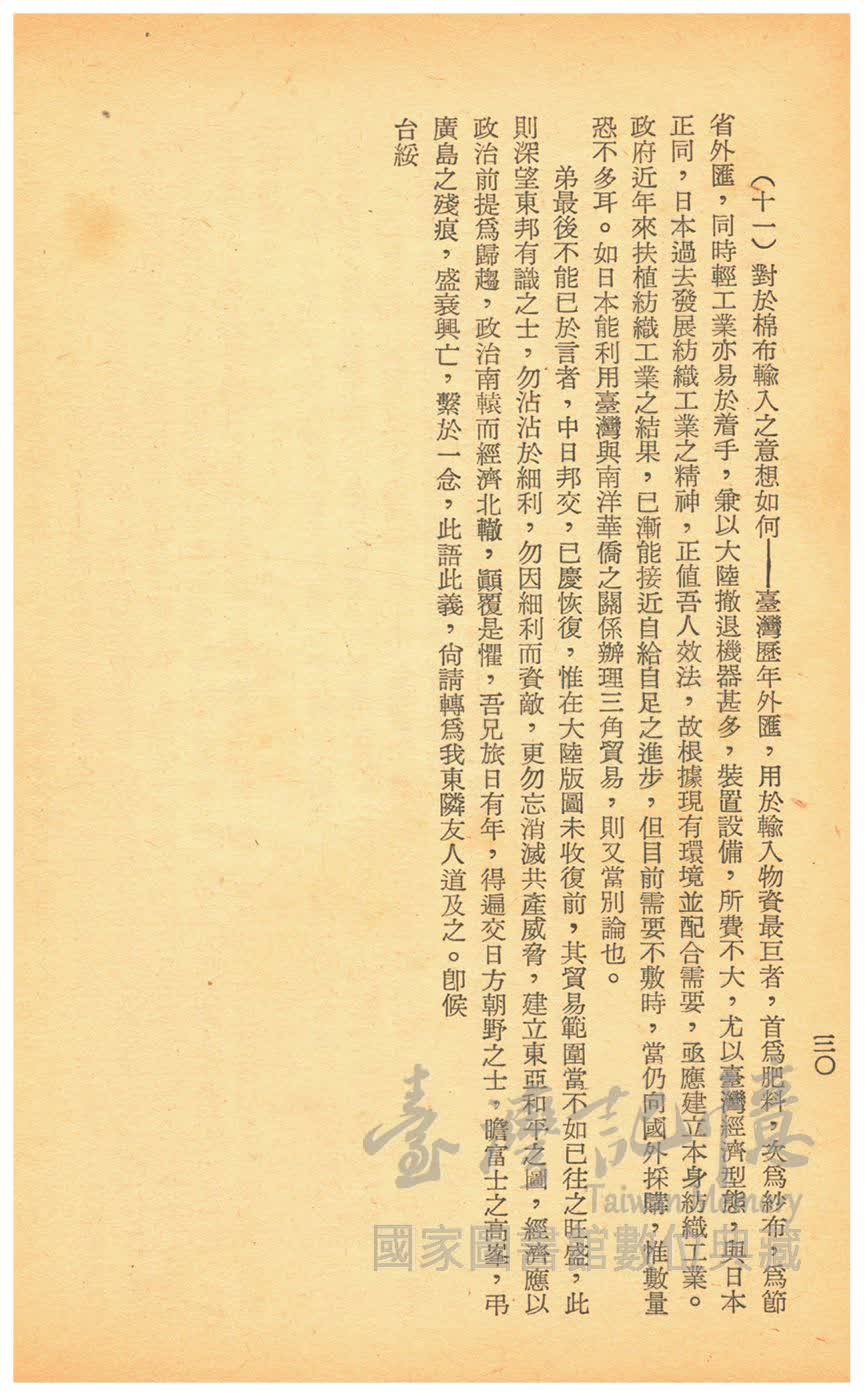 三〇
（十一）對於棉布輸入之意想如何——臺灣歷年外匯，用於輸入物資最巨者，首爲肥料，次爲紗布，爲節
省外匯，同時輕工業亦易於着手，兼以大陸撤退機器甚多，裝置設備，所費不大，尤以臺灣經濟型態，與日本
正同，日本過去發展紡織工業之精神，正值吾人效法，故根據現有環境並配合需要，亟應建立本身紡織工業。
政府近年來扶植紡織工業之結果，已漸能接近自給自足之進步，但目前需要不敷時，當仍向國外採購，惟數量
恐不多耳。如日本能利用臺灣與南洋華僑之關係辦理三角貿易，則又當別論也。
弟最後不能已於言者，中日邦交，已慶恢復，惟在大陸版圖未收復前，其貿易範圍當不如已往之旺盛，此
則深望東邦有識之士，勿沾沾於細利，勿因細利而資敵，更勿忘消滅共產威脅，建立東亞和平之圖，經濟應以
政治前提爲歸趨，政治南轅而經濟北轍，顚覆是懼，吾兄旅日有年，得遍交日方朝野之士，瞻富士之高峯，弔
廣島之殘痕，盛衰興亡，繫於一念，此語此義，尙請轉爲我東隣友人道及之。卽候
台綏
臺灣記憶
Taiwan Memory
國家圖書館數位典藏